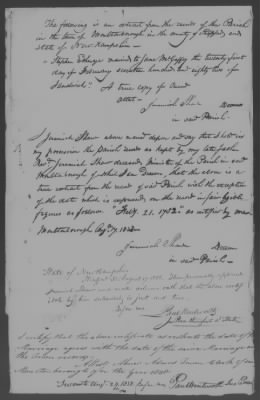 The following is an extract from the records of the Parish
in the town of Moultonborough in the county of Strafford and
State of New Hampshire —
Stephen Ethridge married to Jane McGaffey the twenty first
day of February seventeen hundred and eighty two
Sandwich." A true copy of Record
attest — Jeremiah Shaw
in said Parish.
I Jeremiah Shaw above named depose and say that I hold in
my possession the Parish records as kept by my late father
Revd Jeremiah Shaw deceased, Minister of the Parish in said
Moultonborough that the above is a
true extract from the record of said Parish with the exception
of the date which is expressed, on the record in fair legible
figures as follows "Feby. 21. 1782 as certified by me
Moultonborough Augt 17, 1838
Jeremiah Shaw
in said Parish
State of New Hampshire
August 17 1838. Then personally appeared
Jeremiah Shaw and made oath that the above
by him subscribed is just and true.
Before me
Paul Wentworth
I certify that the above certificate as relates to the date of the
Marriage agrees with the date of the same Marriage on
the town records.
Clerk of
Moultonborough for the year 1838
Augt 27, 1838. before me Paul Wentworth Jus. Peace